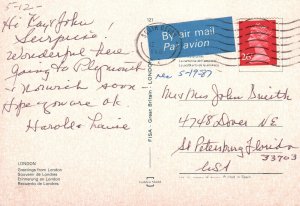 5-12-
Hi Kay & John!
Surprise!
Wonderful here
Going to Plymouth
& Norwich soon -
Hope you're ok
Harold &
LONDON
Greetings from London
Souvenir de Londres
Erinnerung an London
Recuerdo de Londres
FISA - Great Britain - LONDON
Printed in Spain
By air mail
Par avion
rec 5-19-87
Mr & Mrs John Smith
4748 Dover NE
St Petersburg Florida
33703
USA